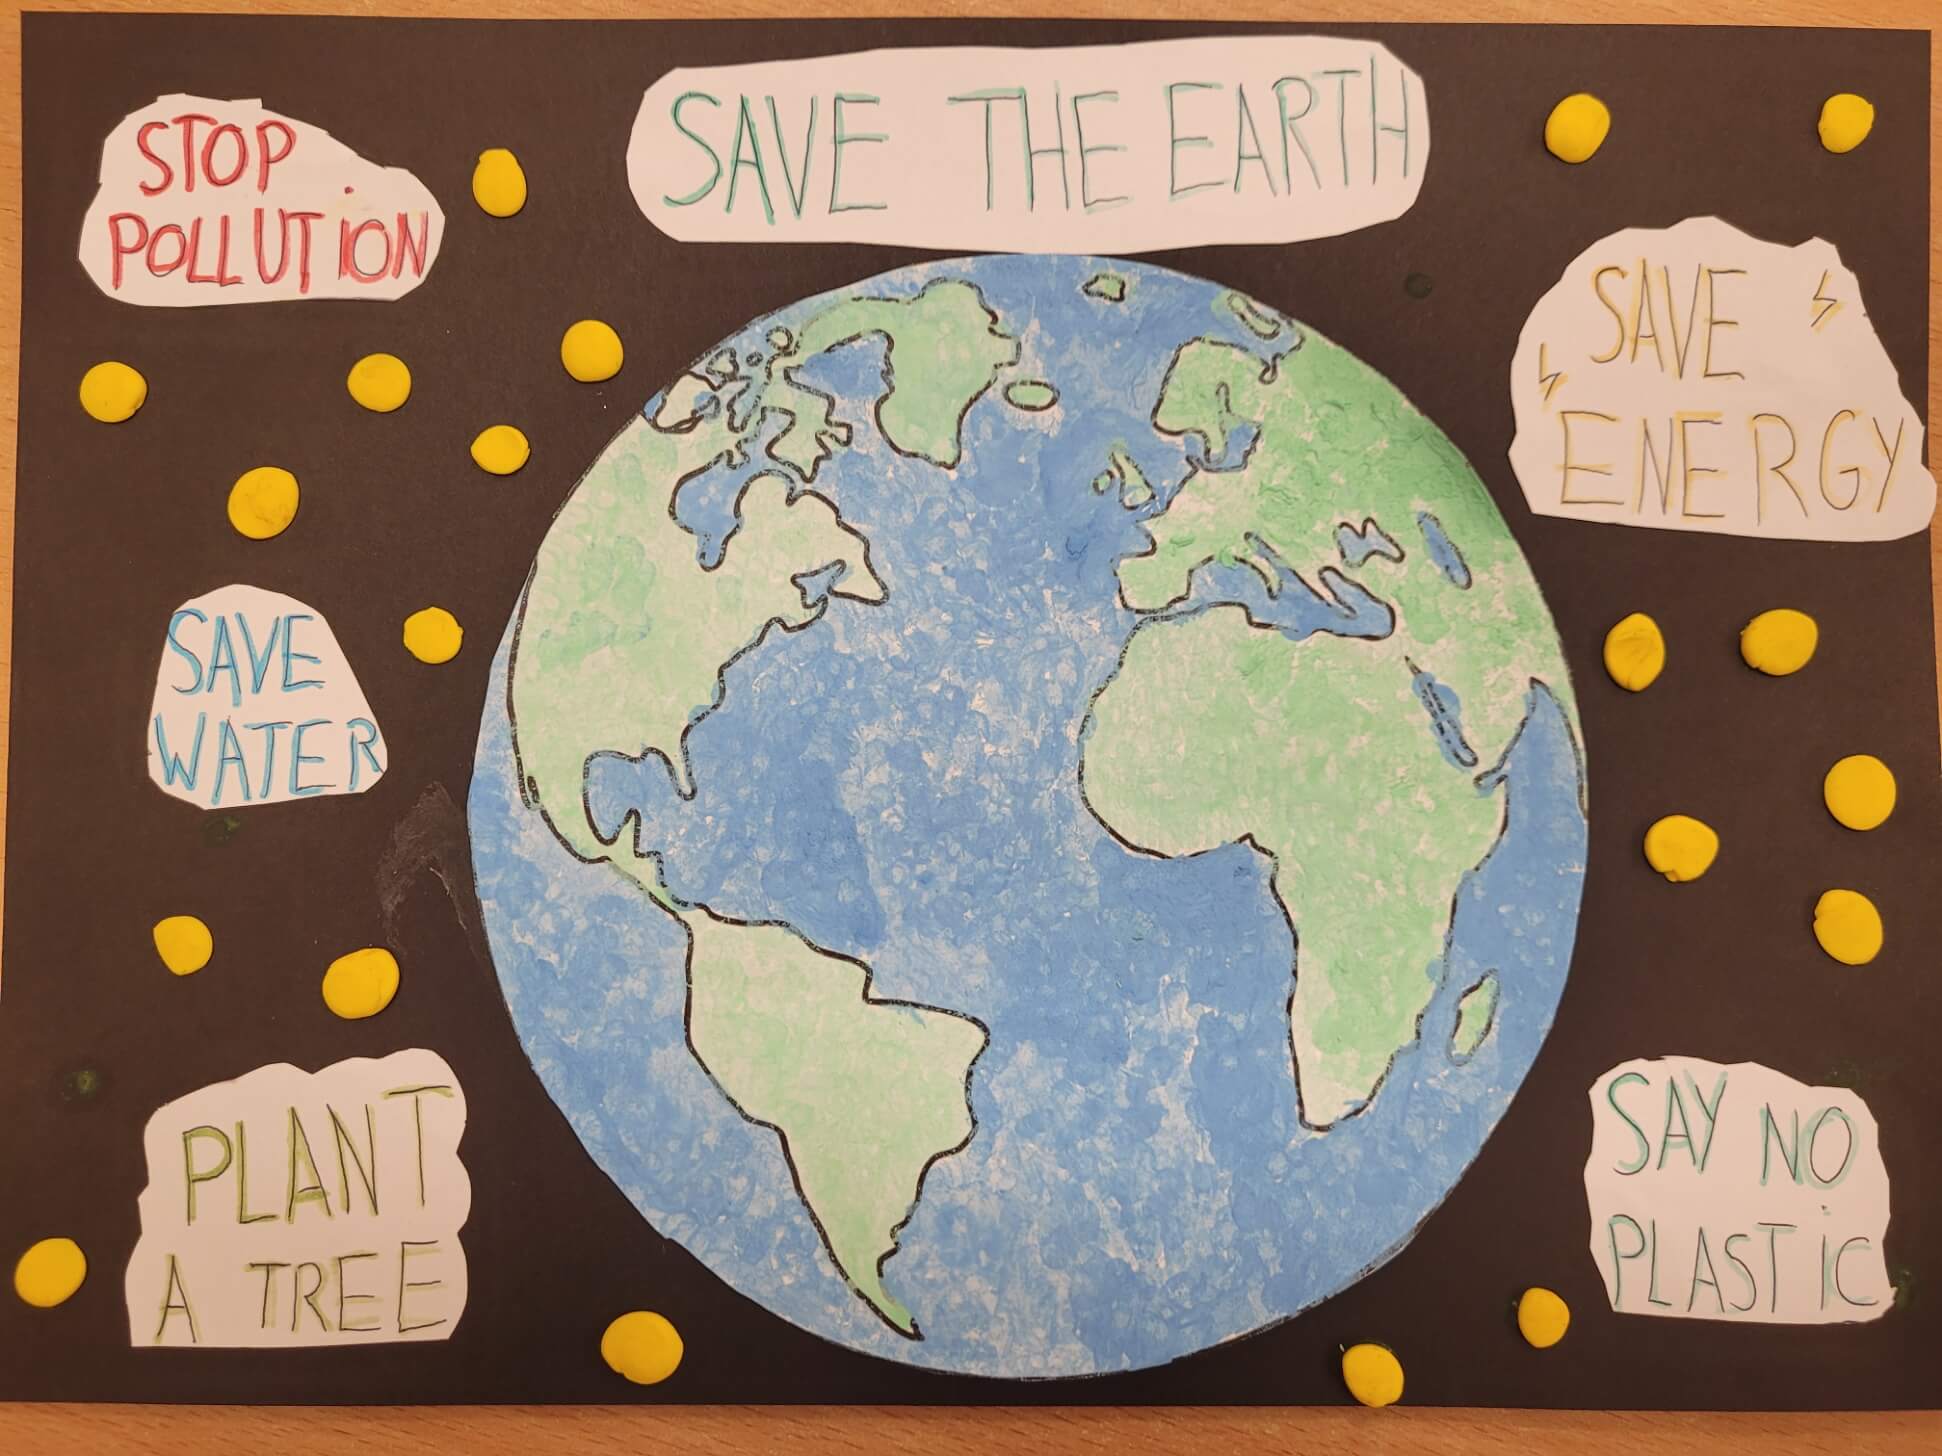 SAVE THE EARTH
STOP
POLLUTiON
SAVE
ENERGY
SAVE
WATER
PLANT
A TREE
SAY NO
PLASTiC